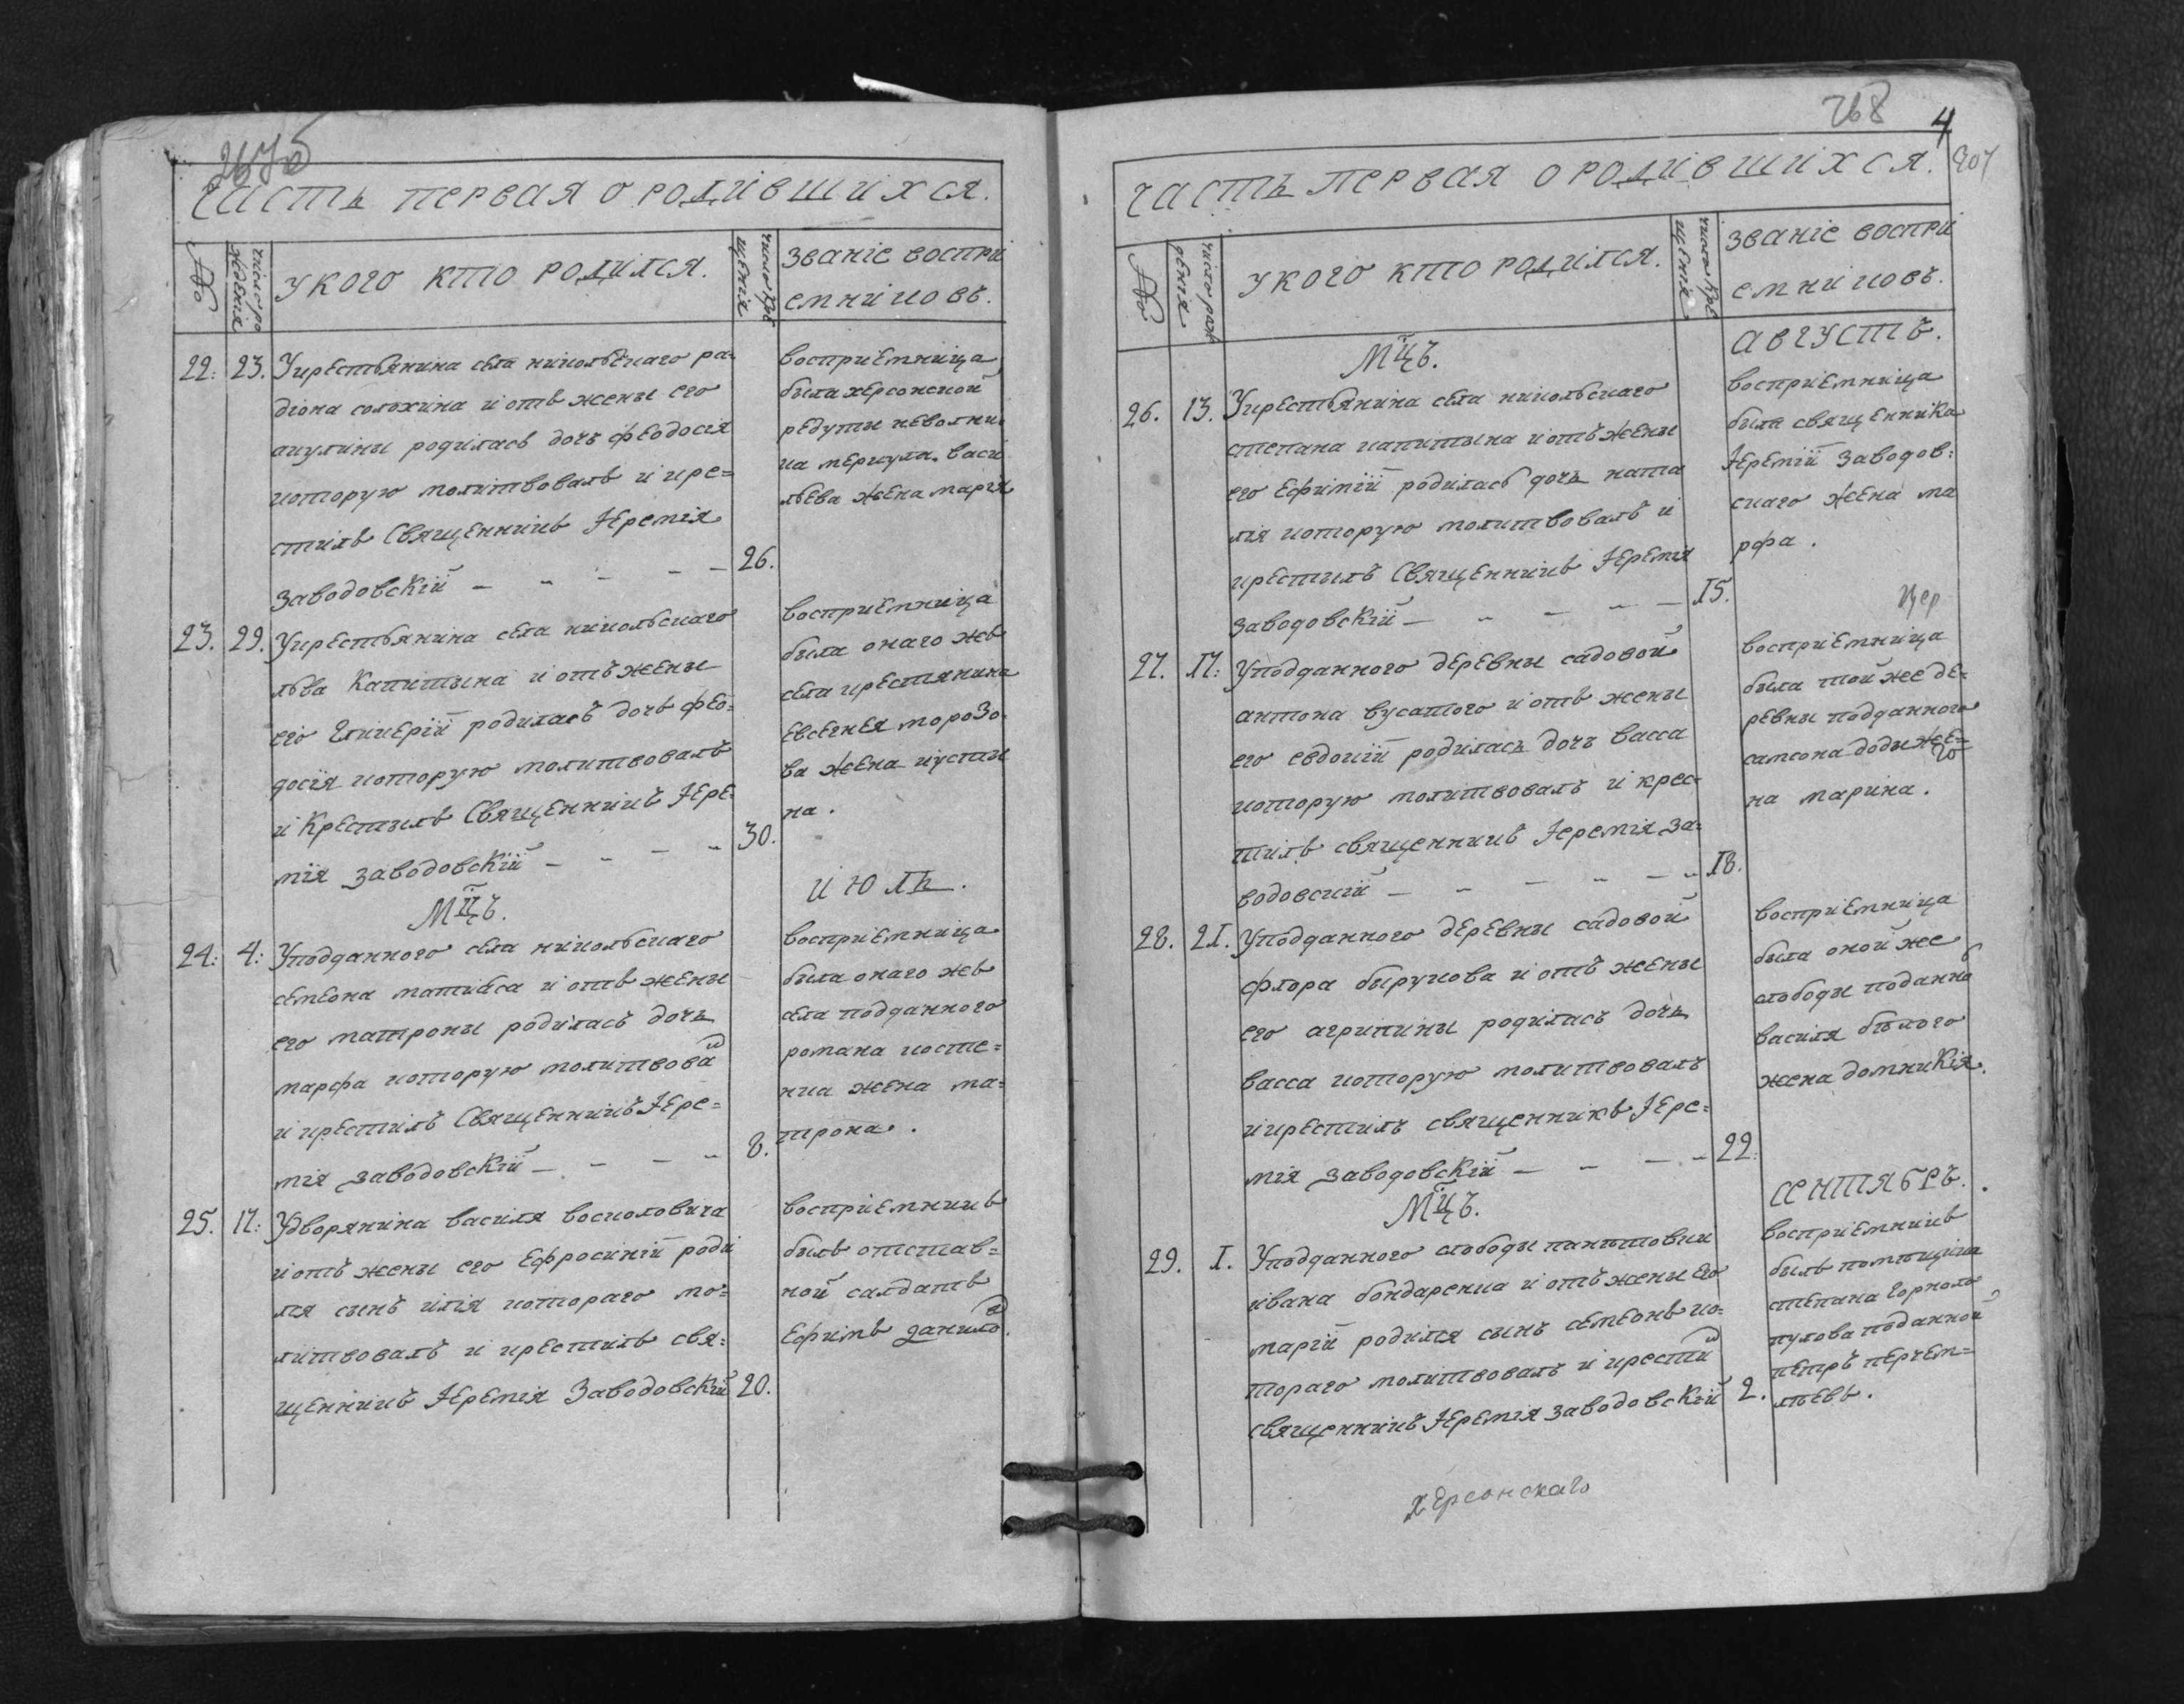 267об
часть первая о родившихся.
№
число рождения
у кого кто родился.
число крещения
званіе воспри
емниковъ.
22: 23. У крестьянина села никольскаго ра-
діона солохина и отъ жены его
акулины родилась дочь феодосія
которую молитвовалъ и кре=
стилъ Священникъ Іеремія
заводовскій 26.
восприемница
была херсонской
редуты неволни
ка меркула васи
льева жена марія
23. 29. У крестьянина села никольскаго
льва капитына и отъ жены
его гликеріи родилась дочь фео=
досія которую молитвовалъ
и крестилъ Священникъ Іере=
мія заводовскій 30.
восприемница
была онаго жъ
села крестянина
евсегнея морозо
ва жена иусти
на.
Мцъ. июль.
24: 4: У подданного села никольскаго
семеона матиаса и отъ жены
его матроны родилась дочь
марфа которую молитвова
и крестилъ Священникъ Іере=
мія заводовскій 8.
восприемница
была онаго жъ
села подданного
романа косте=
нка жена ма=
трона.
25. 17: У дворянина василя восколовича
и отъ жены его Ефросиніи роди
лся сынъ илія котораго мо=
литвовалъ и крестилъ свя=
щенникъ Іеремія Заводовскій 20.
восприемникъ
былъ отстав=
ной салдатъ
Ефимъ данило
268
4
часть первая о родившихся.
№
число рождения
у кого кто родился.
число крещения
званіе воспри
емниковъ.
Мцъ. августъ.
26. 13. У крестьянина села никольскаго
степана капитына и отъ жены
его Ефиміи родилась дочь ната
лія которую молитвовалъ и
крестилъ Священникъ Іеремія
заводовскій 15.
восприемница
была священника
Іереміи заводов=
скаго жена ма
рфа.
27. 17: У подданного деревны садовой
антона вусатого и отъ жены
его евдокіи родилась дочь васса
которую молитвовалъ и крес-
тилъ священникъ Іеремія за=
водовскій 18.
восприемница
была той же де=
ревны подданного
самсона доды же=
на марина.
28. 21. У подданного деревны садовой
флора бырукова и отъ жены
его агрипины родилась дочь
васса которую молитвовалъ
и крестилъ священникъ Іере=
мія заводовскій 22.
восприемница
была оной же
слободы поданно
василя белого
жена домникія.
Мцъ. сентябръ.
29. 1. У подданного слободы
ивана бондаренка и отъ жены его
маріи родился сынъ семеонъ ко=
тораго молитвовалъ и крести
священникъ Іеремія заводовскій 2.
восприемникъ
былъ помещика
степана
поданной
петръ
херсонскаго